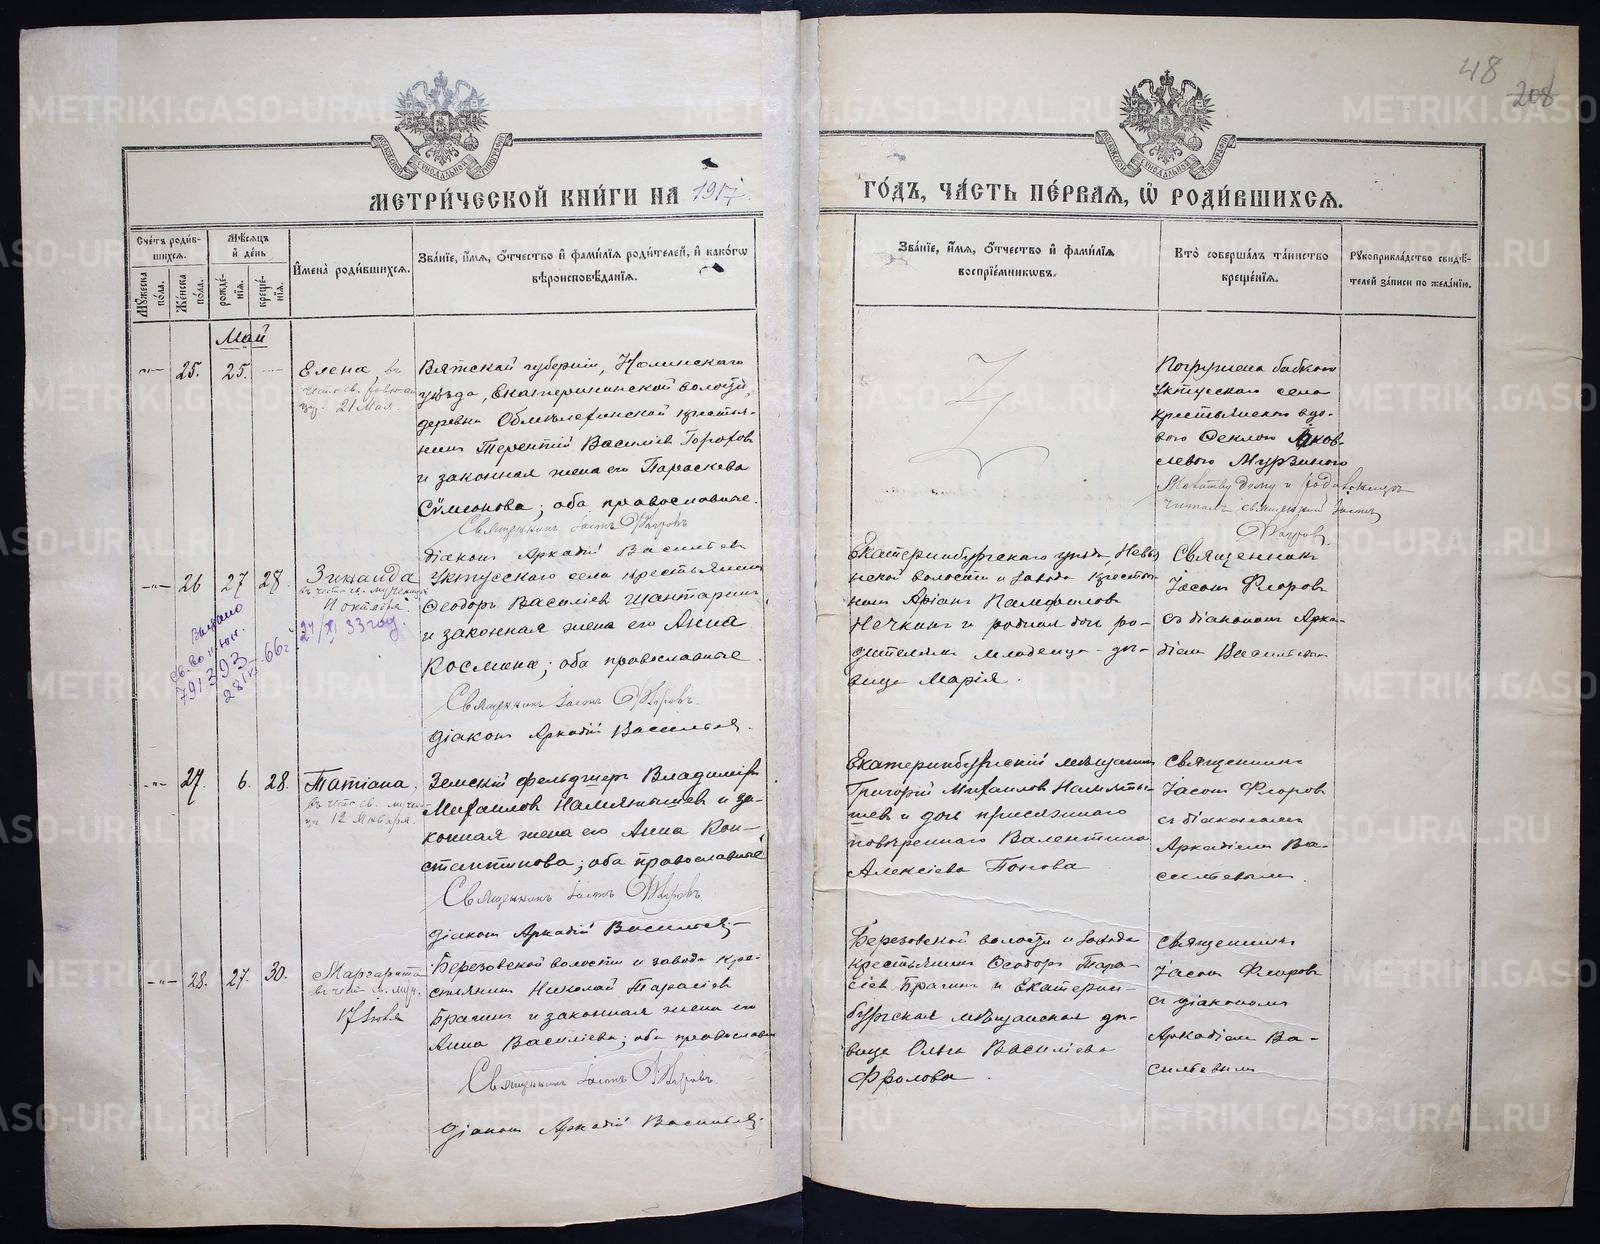 48
208
МЕТРИ́ЧЕСКОЙ КНИ́ГИ НА 1917
ГО́ДЪ, ЧА́СТЬ ПЕ́РВАЯ, Ѽ РОДИ́ВШИХСЯ.
Сче́тъ роди́в-
шихся.
Му́жеска по́ла.
Же́нска по́ла.
Мѣ́сяцъ и́ де́нь
рожде́-
нїя.
креще́-
нїя.
И҆мена̀ роди́вшихся.
Зва́нїе, и҆́мя, ѻ҆́тчество и҆ фами́лїя роди́телей, и҆ како́гѡ
вѣроисповѣ́данїя.
Зва́нїе, и҆́мя, ѻ҆́тчество и҆ фами́лїя
воспрїе́мникѡвъ.
Кто̀ соверша́лъ та́инство
креще́нїя.
Рукоприкла́дство свидѣ́-
телей за́писи по жела́нїю.
Май
25. 25.
Елена, въ
21 Мая.
Вятской губернiи, Нолинскаго
уѣзда, Екатерининской волости,
деревни
нинъ Терентiй Василiевъ Гороховъ
и законная жена его Параскева
Сѷмеонова; оба православные.
Священникъ Iасонъ Флоровъ
дiаконъ Аркадiй Васильевъ
Погружена бабкою
Уктусскаго села
крестьянскою вдо-
вою Феклою Яков-
левою Мурзиною
Молитву дому и родильницѣ
читалъ священникъ Iасонъ
Флоровъ.
26 27 28.
Зинаида
въ честь св. мученицы
11 октября.
Выдано
св. во
791393
28/ 66г.
21/XI 33 год.
Уктусскаго села крестьянинъ
Ѳеодоръ Василiевъ Шантаринъ
и законная жена его Анна
Космина; оба православные.
Священникъ Iасонъ Флоровъ.
дiаконъ Аркадiй Васильевъ.
Екатеринбургскаго уѣзда, Невья-
нской волости и завода крестья-
нинъ Арiанъ Памфиловъ
Нечкинъ и родная дочь ро-
дителямъ младенца - дѣ-
вица Марiя.
Священникъ
Iасонъ Флоровъ
съ дiакономъ Арка-
дiемъ Васильевымъ
27. 6. 28.
Татiана,
въ честь св. мучени-
цы 12 Января.
Земскiй фельдшеръ Владимiръ
Михаиловъ Намятышевъ и за-
конная жена его Анна Кон-
стантинова; оба православные
Священникъ Iасонъ Флоровъ.
дiаконъ Аркадiй Васильевъ
Екатеринбургскiй мѣщанинъ
Григорiй Михаиловъ Намяты-
шевъ и дочь присяжнаго
повѣреннаго Валентина
Алексiева Попова
Священникъ
Iасонъ Флоровъ
съ дiакономъ
Аркадiемъ Ва-
сильевымъ.
28. 27. 30.
Маргарита
въ честь св. муч.
17 Iюля
Березовской волости и завода кре-
стьянинъ Николай Тарасiевъ
Брагинъ и законная жена его
Анна Василiева; оба православн.
Священникъ Iасонъ Флоровъ.
дiаконъ Аркадiй Васильевъ.
Березовской волости и завода
крестьянинъ Ѳеодоръ Тара-
сiевъ Брагинъ и Екатерин-
бургская мѣщанская дѣ-
вица Ольга Василiева
Фролова.
Священникъ
Iасонъ Флоровъ
съ дiакономъ
Аркадiемъ Ва-
сильевымъ
METRIKI.GASO-URAL.RU